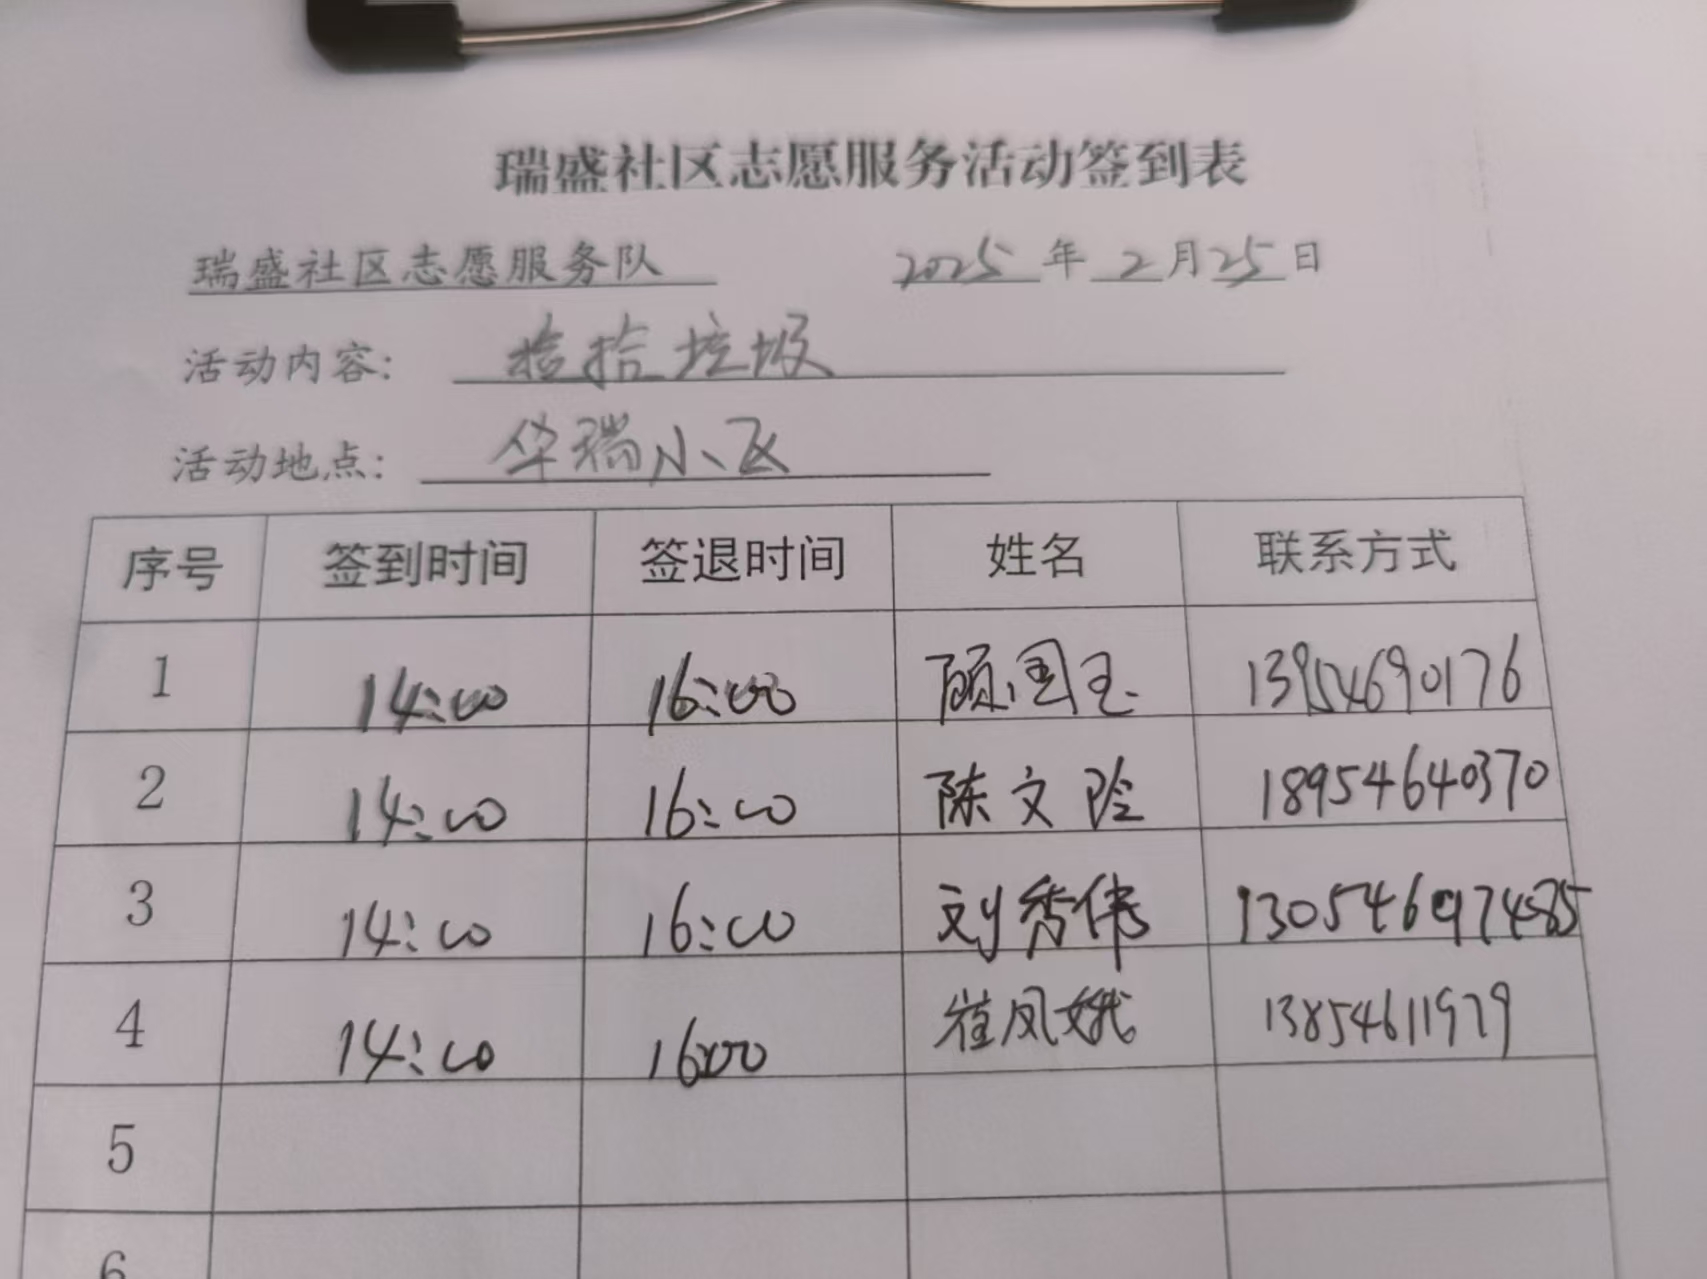 瑞盛社区志愿服务活动签到表
瑞盛社区志愿服务队 2025年2月25日
活动内容: 捡拾垃圾
活动地点: 华瑞小区
序号 签到时间 签退时间 姓名 联系方式
1 14:00 16:00 顾国玉 13954690176
2 14:00 16:00 陈文 18954640370
3 14:00 16:00 刘秀伟
4 14:00 16:00 崔凤娥 13854611979
5
6